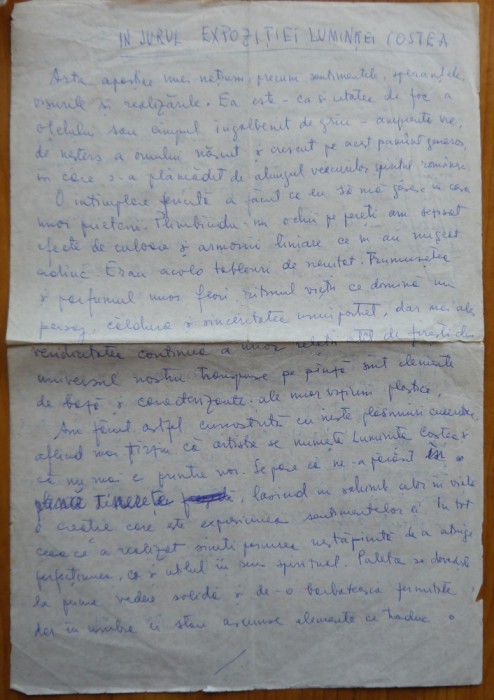 IN JURUL EXPOZIȚIEI LUMINIȚEI COSTEA
Arta aparține unei națiuni, precum sentimentele, speranțele,
visurile și realizările. Ea este - ca și cetatea de foc a
oțelului sau câmpul îngălbenit de grîu - amprenta vie,
de neșters a omului născut și crescut pe acest pămînt generos,
în care s-a plămădit de-alungul veacurilor spiritul românesc.
O întîmplare fericită a făcut ca eu să mă găsesc în casa
unor prieteni. Plimbîndu-mi ochii pe pereți am sesizat
efecte de culoare și armonii liniare ce m-au mișcat
adînc. Erau acolo tablouri de neuitat. Frumusețea
și parfumul unor flori, ritmul vieții ce domină un
peisaj, căldura și sinceritatea unui portret, dar mai ales
veridicitatea continuă a unor relații atît de firești din
universul nostru transpuse pe pînză sunt elemente
de bază și caracterizante ale unor viziuni plastice.
Am făcut astfel cunoștință cu aceste plăsmuiri
aflînd mai tîrziu că artista se numește Luminița Costea și
că nu mai e printre noi. Se pare că ne-a părăsit în
plină tinerețe, lăsînd în schimb celor în viață
o creație care este expresiunea sentimentelor ei. În tot
ceea ce a realizat simți pornirea nestăpînită de a atinge
perfecțiunea, ca și altul în sens spiritual. Paleta se dovedește
la prima vedere solidă și de-o bărbătească fermitate
dar în umbre îi stau ascunse elemente ce traduc o